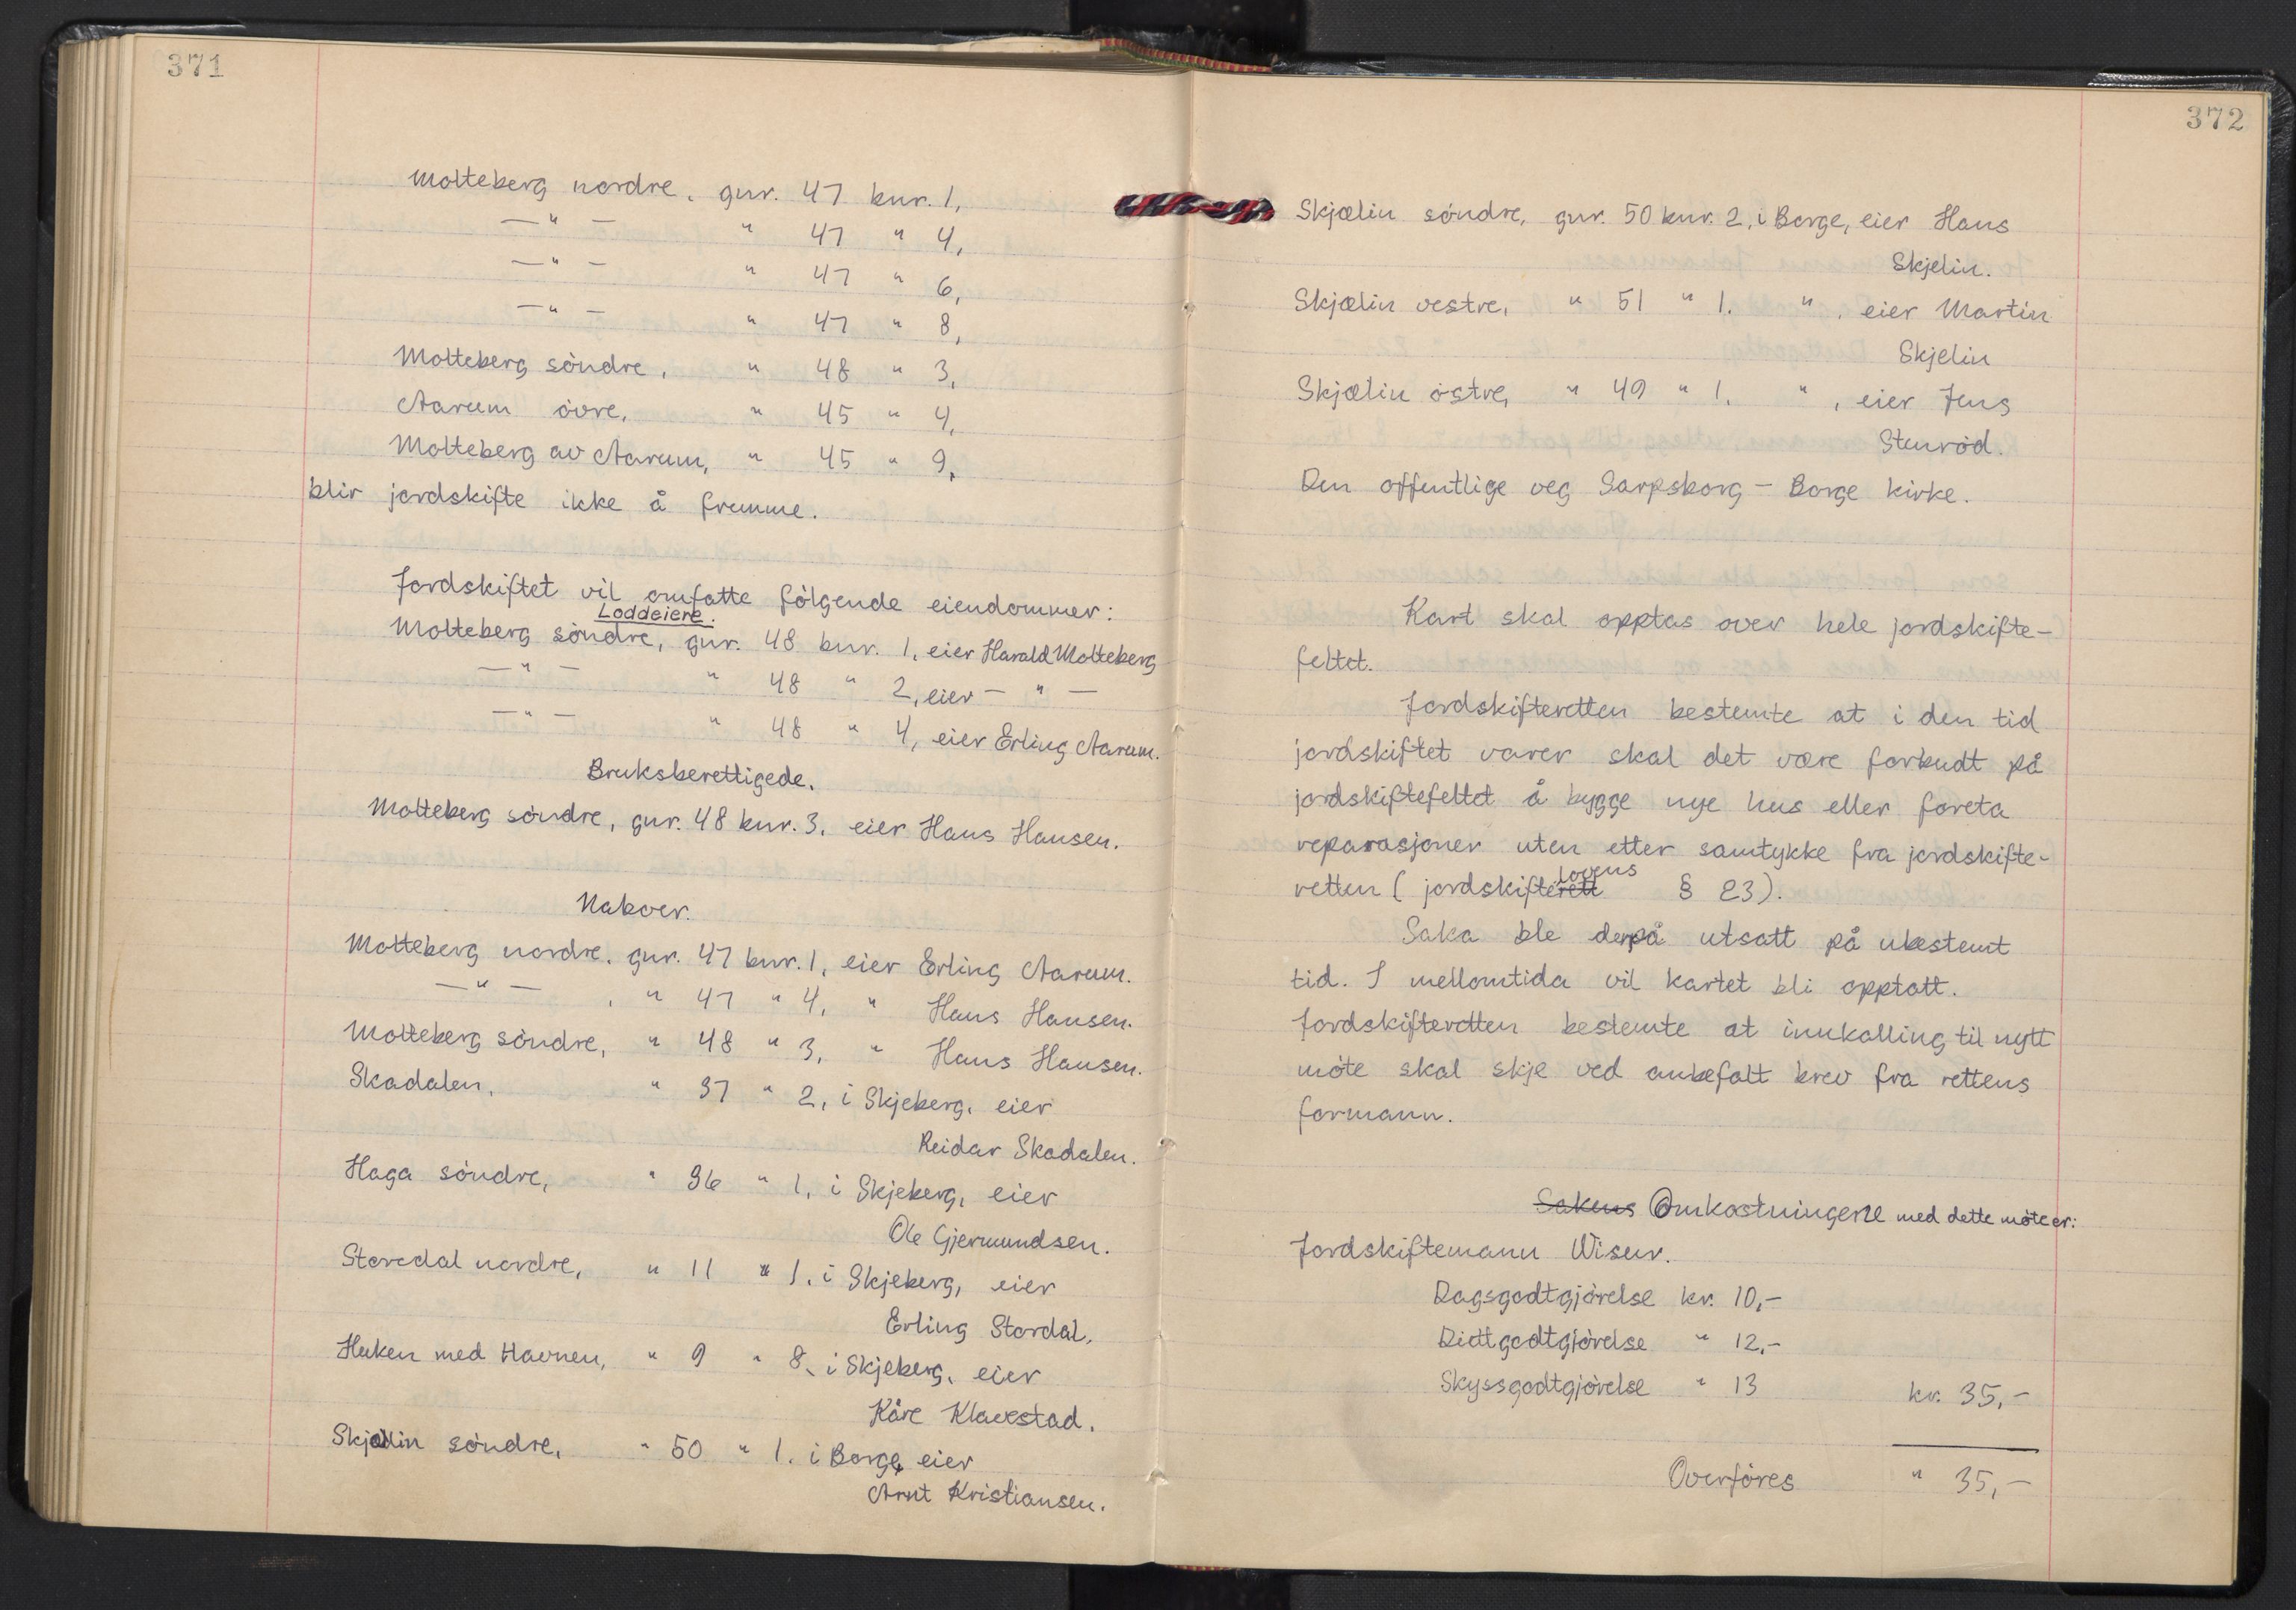 371
Molteberg nordre, gnr. 47 bnr. 1,
— " — " 47 " 4,
— " — " 47 " 6,
— " — " 47 " 8,
Molteberg söndre, " 48 " 3,
Aarum övre, " 45 " 4,
Molteberg av Aarum, " 45 " 9,
blir jordskifte ikke å fremme.
Jordskiftet vil omfatte fölgende eiendommer:
Loddeiere.
Molteberg söndre, gnr. 48 bnr. 1, eier Harald Molteberg
— " — " 48 " 2, eier — " —
— " — " 48 " 4, eier Erling Aarum.
Bruksberettigede.
Molteberg söndre, gnr. 48 bnr. 3, eier Hans Hansen.
Naboer.
Molteberg nordre, gnr. 47 bnr. 1, eier Erling Aarum.
— " — , " 47 " 4, " Hans Hansen.
Molteberg söndre, " 48 " 3, " Hans Hansen.
Skadalen, " 37 " 2, i Skjeberg, eier
Reidar Skadalen.
Haga söndre, " 36 " 1, i Skjeberg, eier
Ole Gjermundsen.
Storedal nordre, " 11 " 1, i Skjeberg, eier
Erling Stordal.
Huken med Havnen, " 9 " 8, i Skjeberg, eier
Kåre Klavestad.
Skjælin söndre, " 50 " 1. i Borge, eier
Arnt Kristiansen.
372
Skjælin söndre, gnr. 50 bnr. 2, i Borge, eier Hans
Skjelin.
Skjælin vestre, " 51 " 1. " , eier Martin
Skjelin
Skjælin östre, " 49 " 1. " , eier Jens
Stenröd.
Den offentlige veg Sarpsborg — Borge kirke.
Kart skal opptas over hele jordskifte-
feltet.
Jordskifteretten bestemte at i den tid
jordskiftet varer skal det være forbudt på
jordskiftefeltet å bygge nye hus eller foreta
reparasjoner uten etter samtykke fra jordskifte-
lovens
retten ( jordskifterett § 23).
Saka ble derpå utsatt på ubestemt
tid. I mellomtida vil kartet bli opptatt.
Jordskifteretten bestemte at innkalling til nytt
möte skal skje ved anbefalt brev fra rettens
formann.
Sakens Omkostningene med dette möte er:
Jordskiftemann Wisur.
Dagsgodtgjörelse kr. 10,-
Diettgodtgjörelse " 12,-
Skyssgodtgjörelse " 13 kr. 35,-
Overföres " 35,-